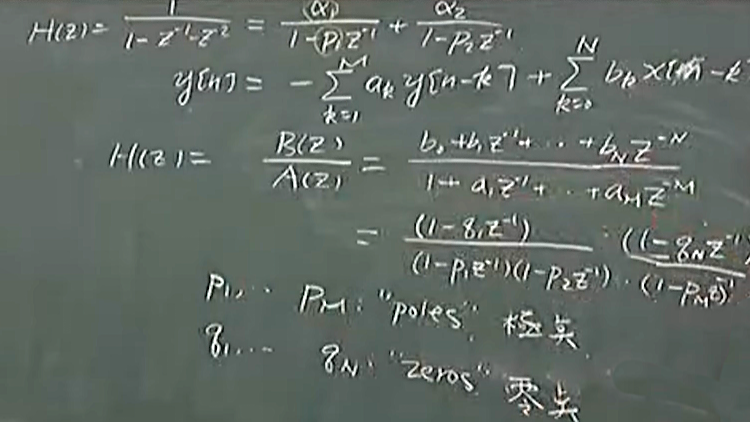 H(z) = 1/(1 - z⁻¹ - z⁻²) = α₁/(1 - p₁z⁻¹) + α₂/(1 - p₂z⁻¹)
y[n] = - Σ_{k=1}^{M} aₖ y[n-k] + Σ_{k=0}^{N} bₖ x[n-k
H(z) = B(z)/A(z) = (b₀ + b₁z⁻¹ + ·· + b_N z^{-N})/(1 + a₁z⁻¹ + ·· + a_M z^{-M})
= (1 - q₁z⁻¹) ·· (1 - q_N z⁻¹)/(1 - p₁z⁻¹)(1 - p₂z⁻¹) ·· (1 - p_M z)⁻¹
p₁, ·· p_M : "poles" 極点
q₁, ·· q_N : "zeros" 零点